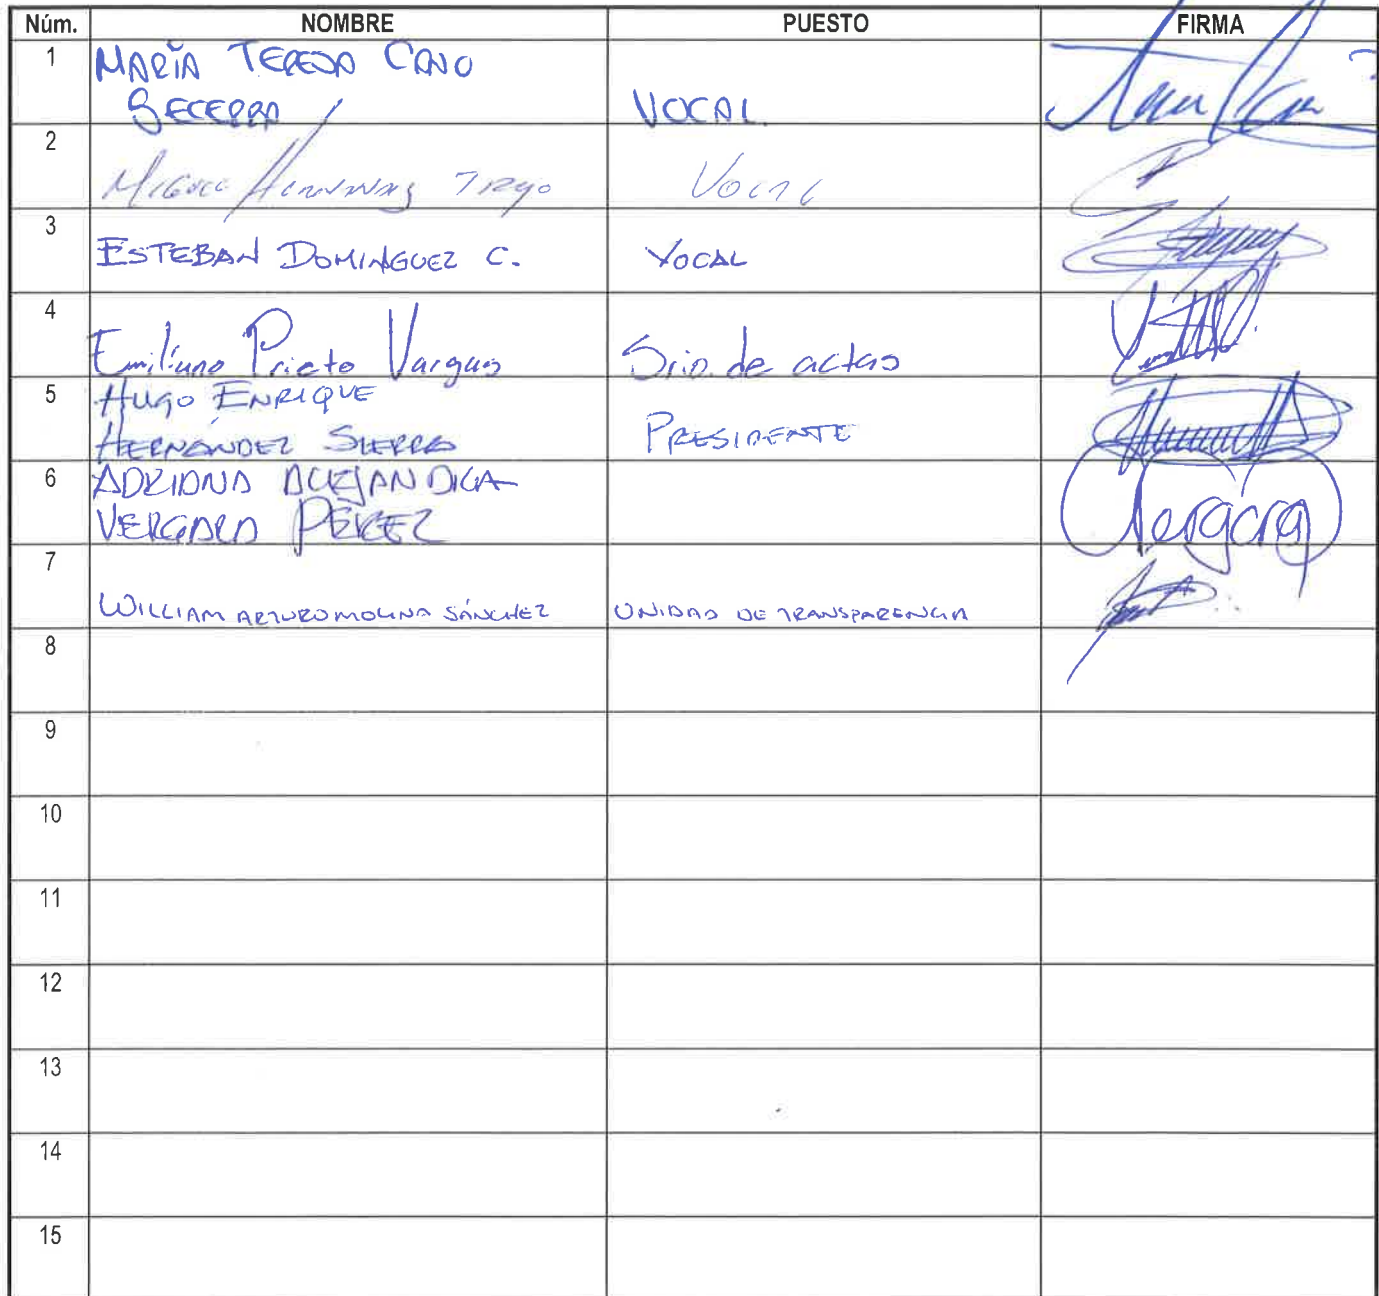 Núm. NOMBRE PUESTO FIRMA
1 MARÍA TERESA CANO
BECERRA VOCAL
2 MIGUEL HERNÁNDEZ TREJO VOCAL
3 ESTEBAN DOMINGUEZ C. VOCAL
4 Emiliano Prieto Vargas Srio. de actas
5 HUGO ENRIQUE
HERNÁNDEZ SIERRA PRESIDENTE
6 ADRIANA ALEJANDRA
VERGARA PÉREZ Vergara
7
WILLIAM ARTURO MOLINA SÁNCHEZ UNIDAD DE TRANSPARENCIA
8
9
10
11
12
13
14
15